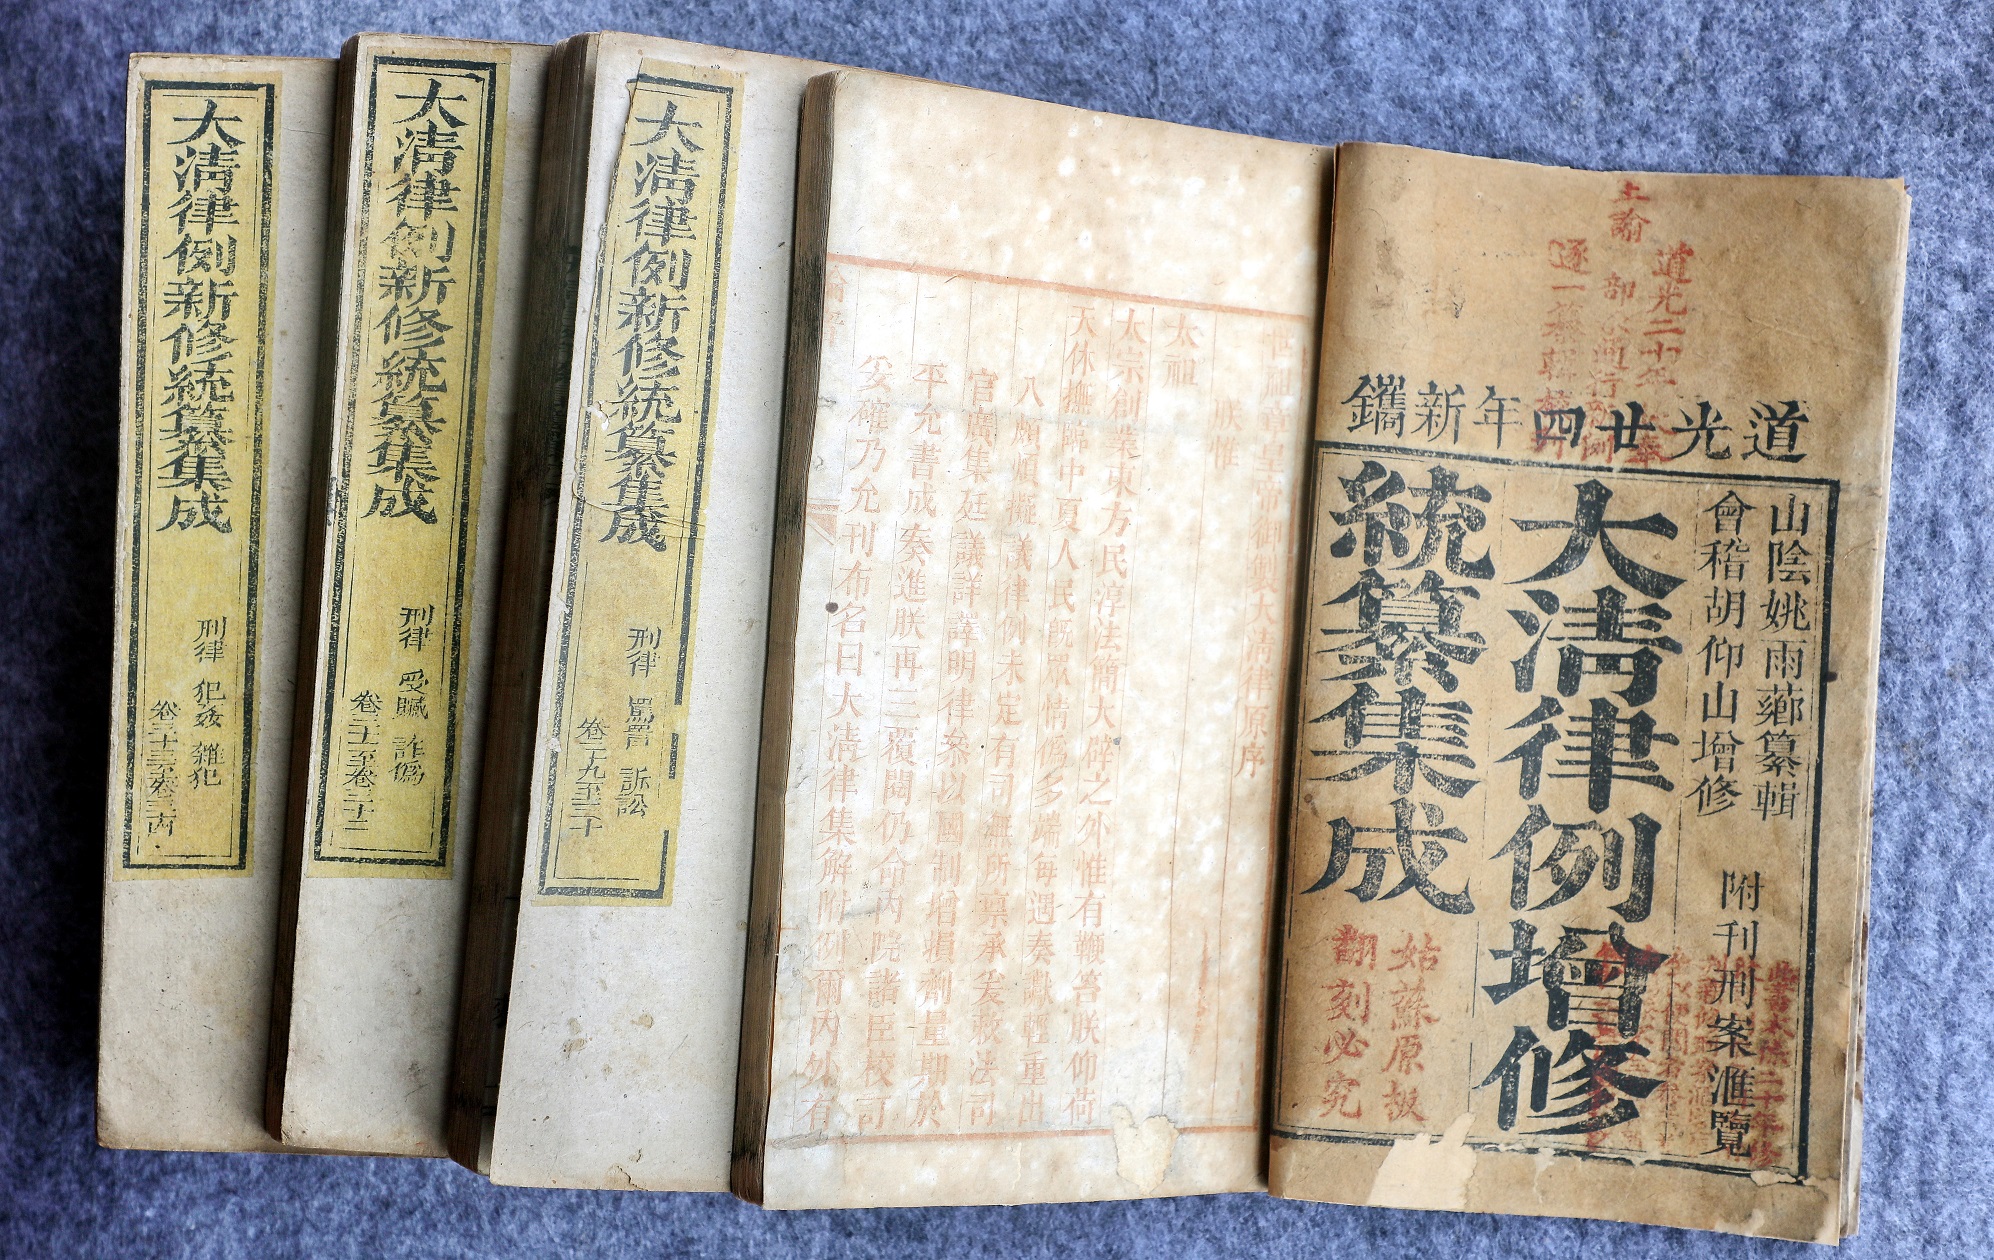 大清律例新修統纂集成
刑律 犯姦 雜犯
卷三十三至卷三十四
大清律例新修統纂集成
刑律 受贓 詐僞
卷三十一至卷三十二
大清律例新修統纂集成
刑律 罵詈 訴訟
卷二十九至三十
世祖章皇帝御製大清律原序
朕惟
太祖
太宗創業東方民淳法簡大辟之外惟有鞭笞朕仰荷
天休撫臨中夏人民既眾情僞多端每遇奏讞輕重出
入頗煩擬議律例未定有司無所稟承爰敕法司
官廣集廷議詳譯明律參以國制增損劑量期於
平允書成奏進朕再三覆閱仍命內院諸臣校訂
妥確乃允刊布名曰大清律集解附例爾內外有
道光廿四年新鐫
山陰姚雨薌纂輯
會稽胡仰山增修
附刊刑案滙覽
大清律例增修
統纂集成
道光二十年
上諭
部
通行
逐一纂輯
姑蘇原板
翻刻必究